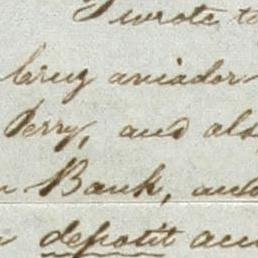 I wrote to
aviador
Perry, and als
Bank, and
deposit acc